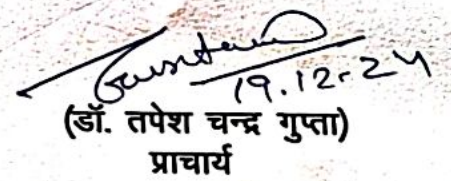 19.12.24
(डॉ. तपेश चन्द्र गुप्ता)
प्राचार्य